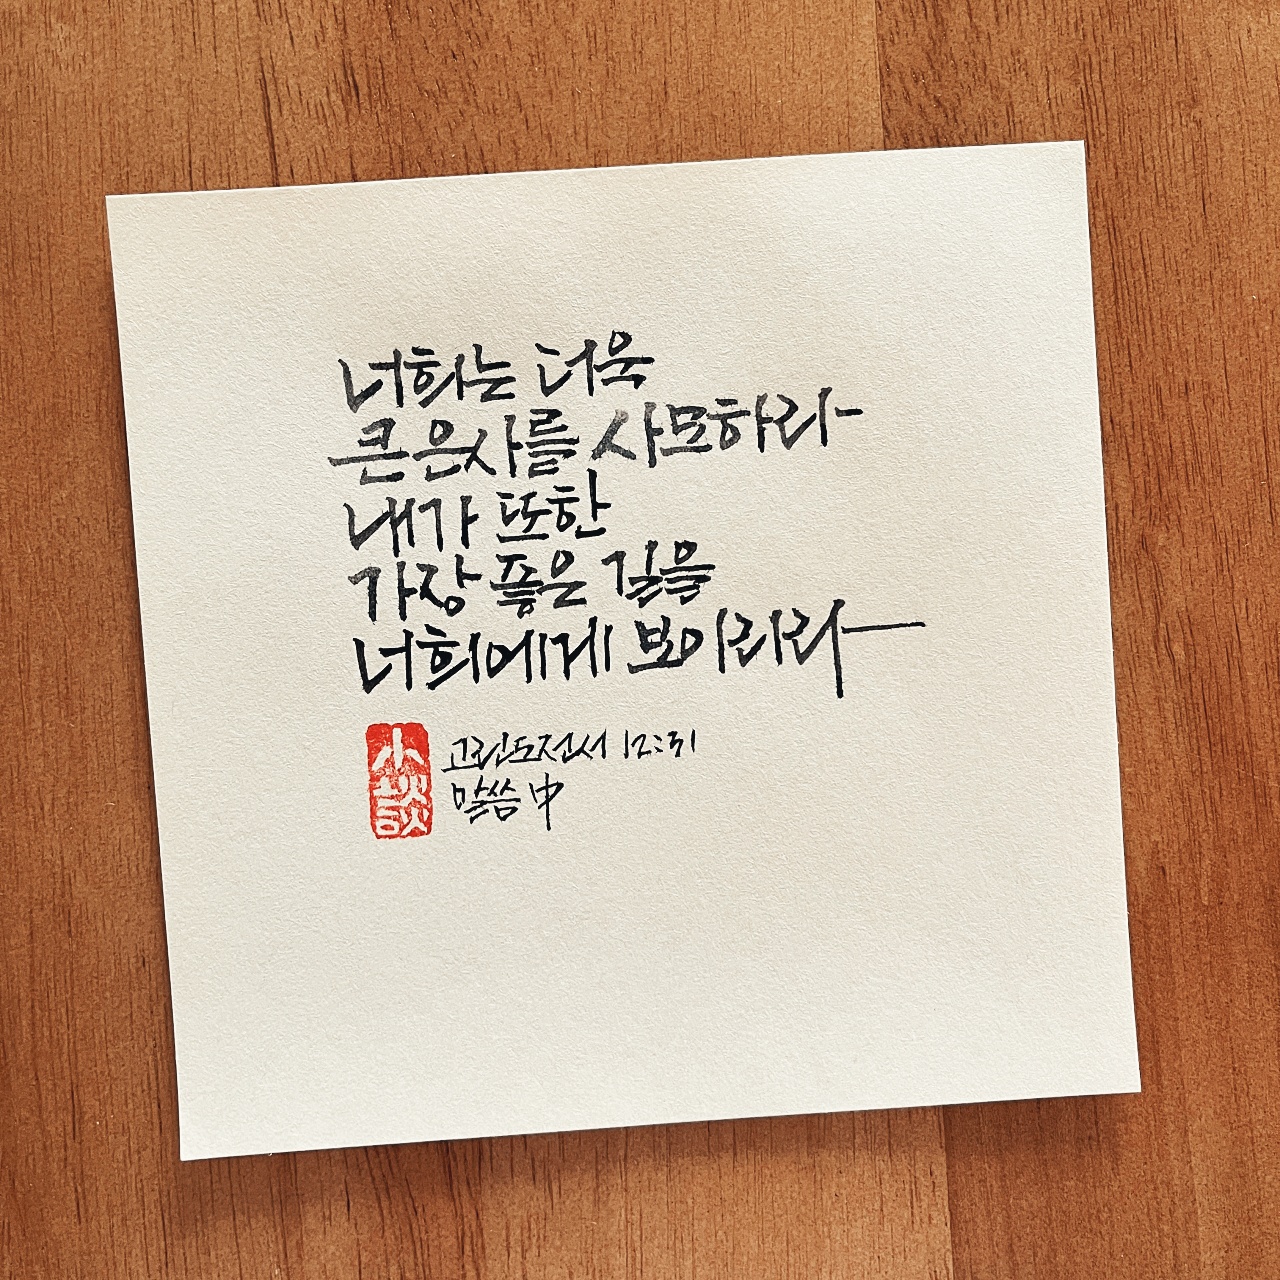 너희는 더욱
큰 은사를 사모하라
내가 또한
가장 좋은 길을
너희에게 보이리라
小談
고린도전서 12:31
말씀 中